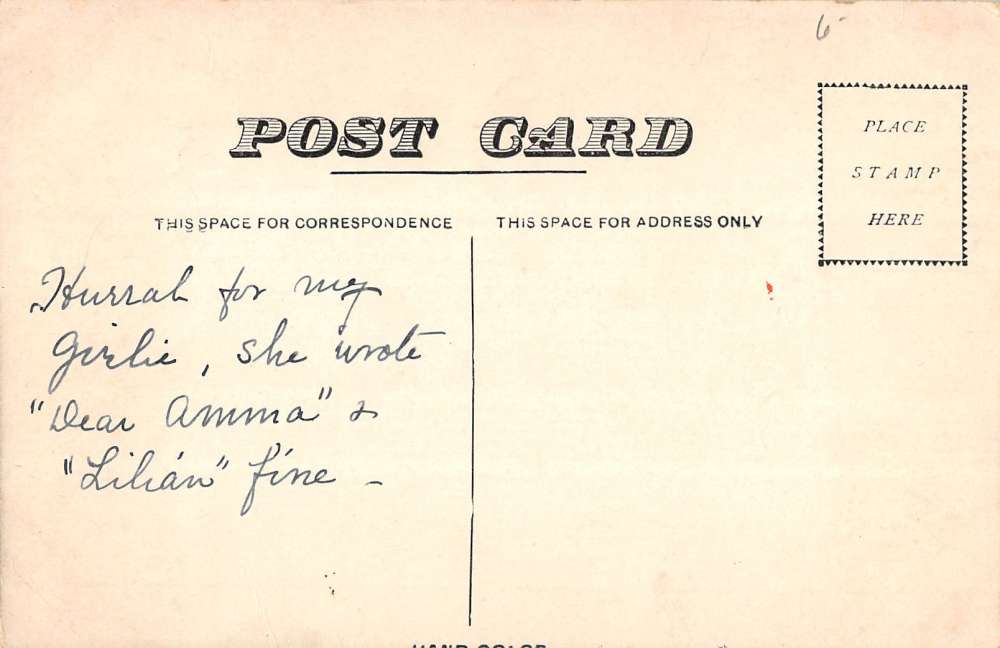 6
POST CARD
PLACE
STAMP
HERE
THIS SPACE FOR CORRESPONDENCE
THIS SPACE FOR ADDRESS ONLY
Hurrah for my
Girlie, she wrote
"Dear Amma" &
"Lilián" fine -
HAND COLOR